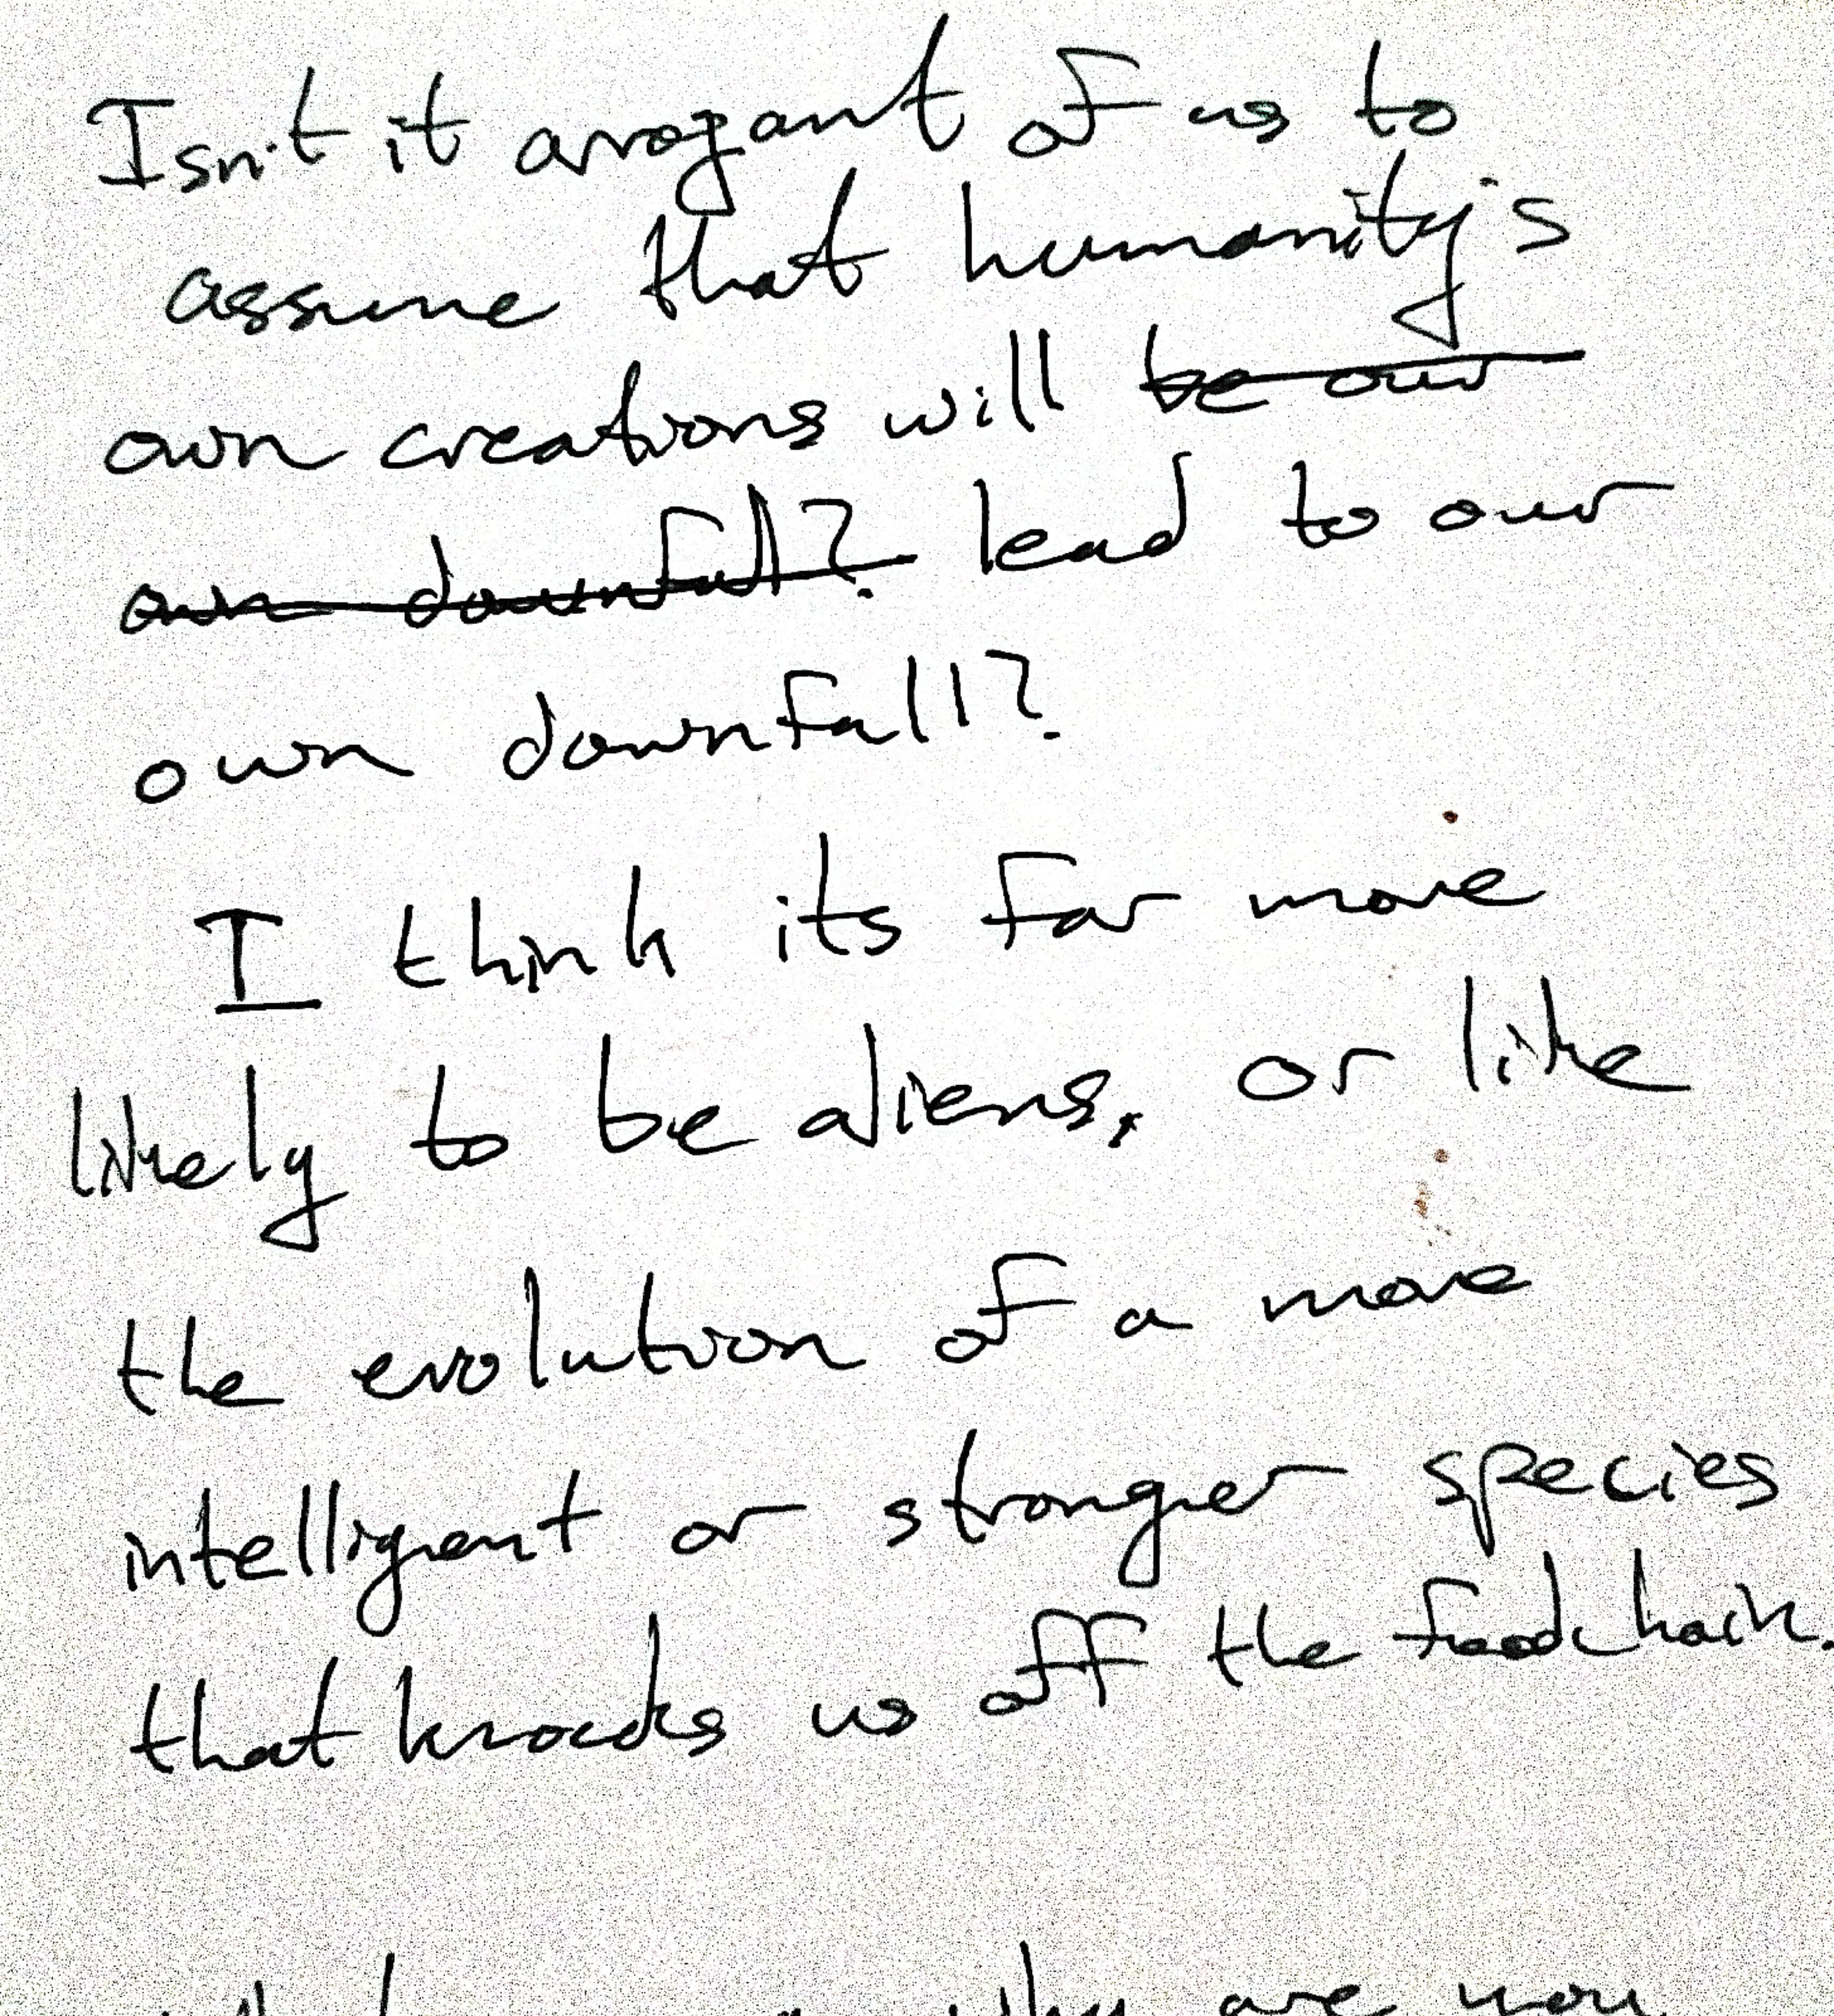 Isn't it arrogant of us to
assume that humanity's
own creations will be our
own downfall? lead to our
own downfall?
I think its far more
likely to be aliens, or like
the evolution of a more
intelligent or stronger species
that knocks us off the foodchain.
are you